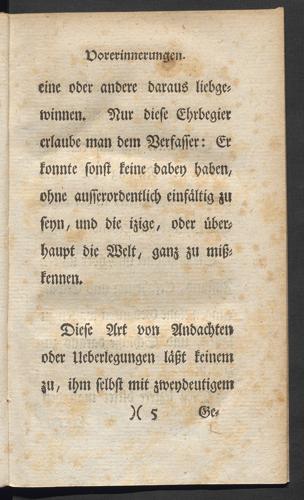 Vorerinnerungen.
eine oder andere daraus liebge-
winnen. Nur diese Ehrbegier
erlaube man dem Verfasser: Er
konnte sonst keine dabey haben,
ohne ausserordentlich einfältig zu
seyn, und die izige, oder über-
haupt die Welt, ganz zu miß-
kennen.
Diese Art von Andachten
oder Ueberlegungen läßt keinem
zu, ihm selbst mit zweydeutigem
)( 5 Ge-